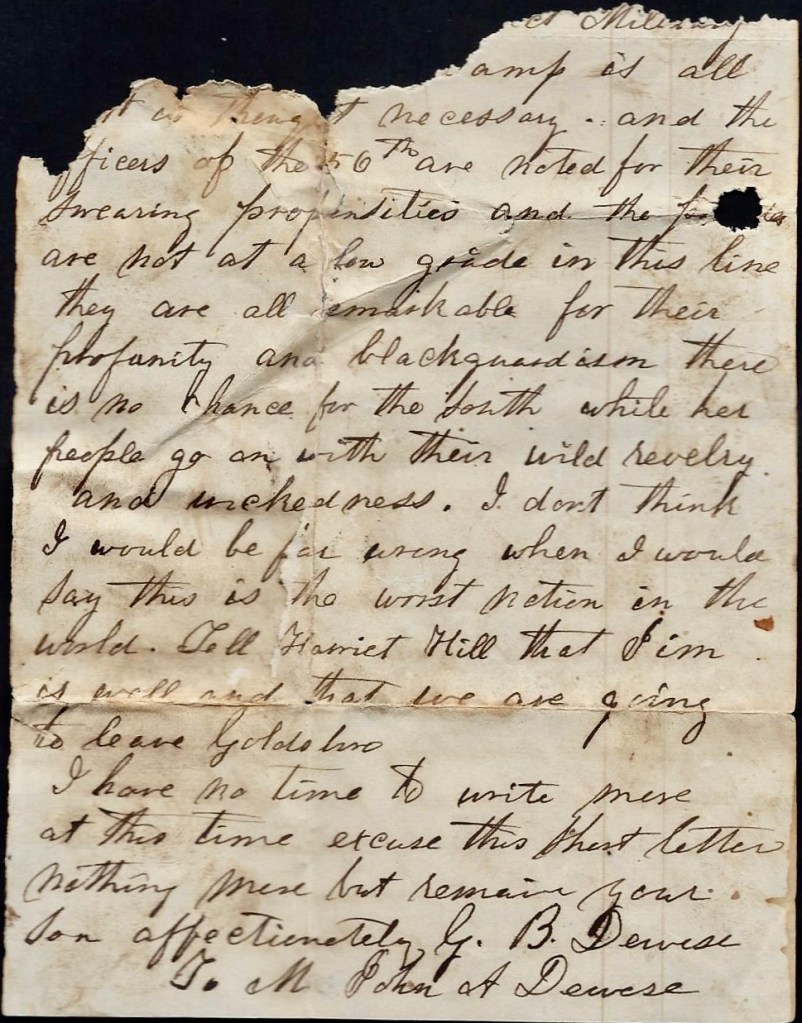 Military
amp is all
necessary. and the
fficers of the 56th are noted for their
swearing propensities and the
are not at a low grade in this line
they are all emarkable for their
profanity and blackguardism there
is no chance for the South while her
people go on with their wild revelry
and wickedness. I dont think
I would be far wrong when I would
say this is the worst nation in the
world. Tell Harriet Hill that Jim
is well and that we are going
to leave Goldsboro
I have no time to write more
at this time excuse this short letter
nothing more but remain your
son affectionately G. B. Dewese
To M John A Dewese